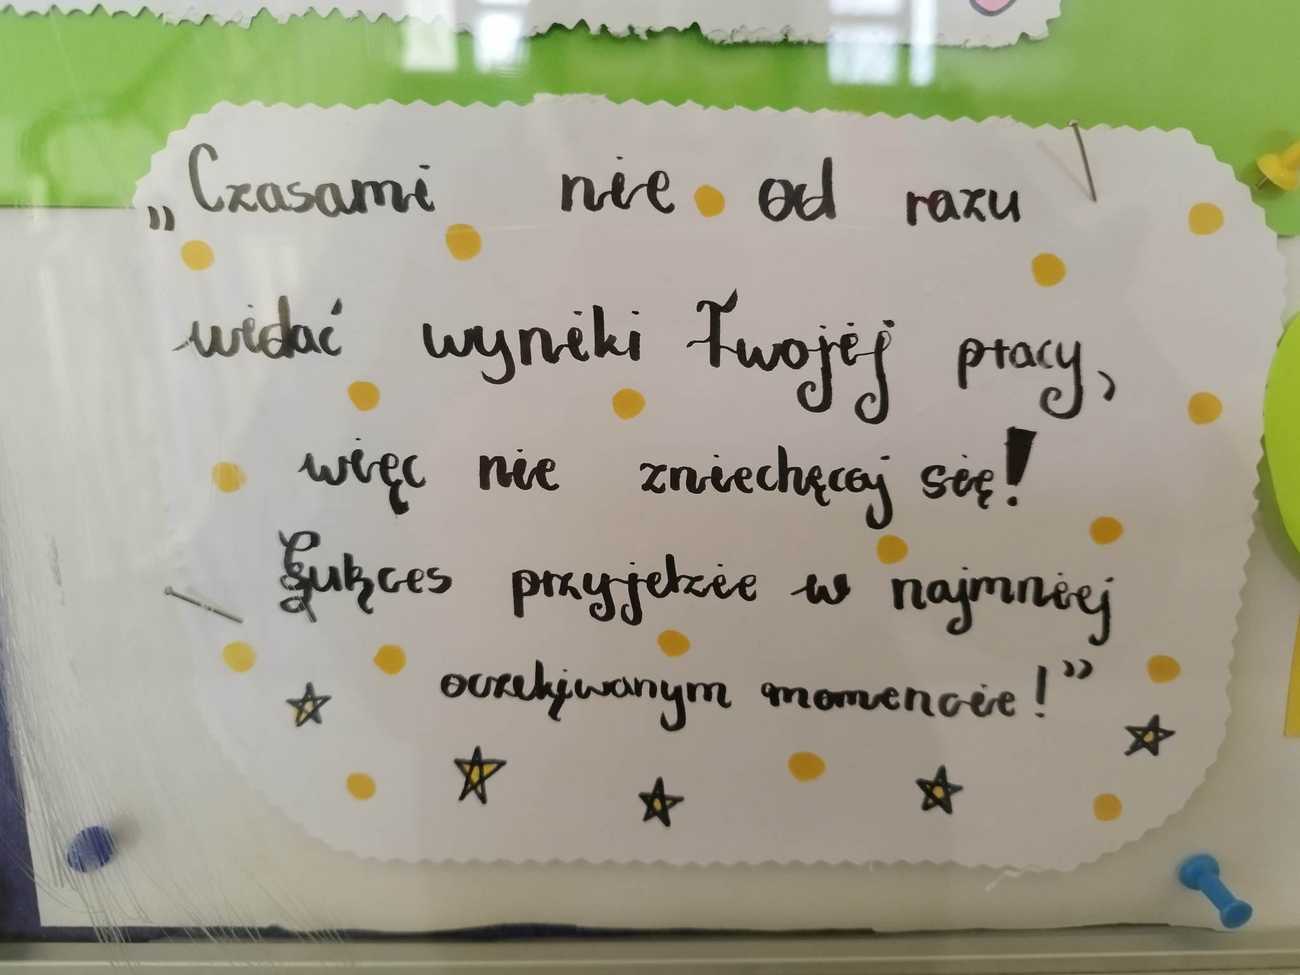 „Czasami nie od razu
widać wyniki Twojej pracy,
więc nie zniechęcaj się!
Sukces przyjdzie w najmniej
oczekiwanym momencie!”